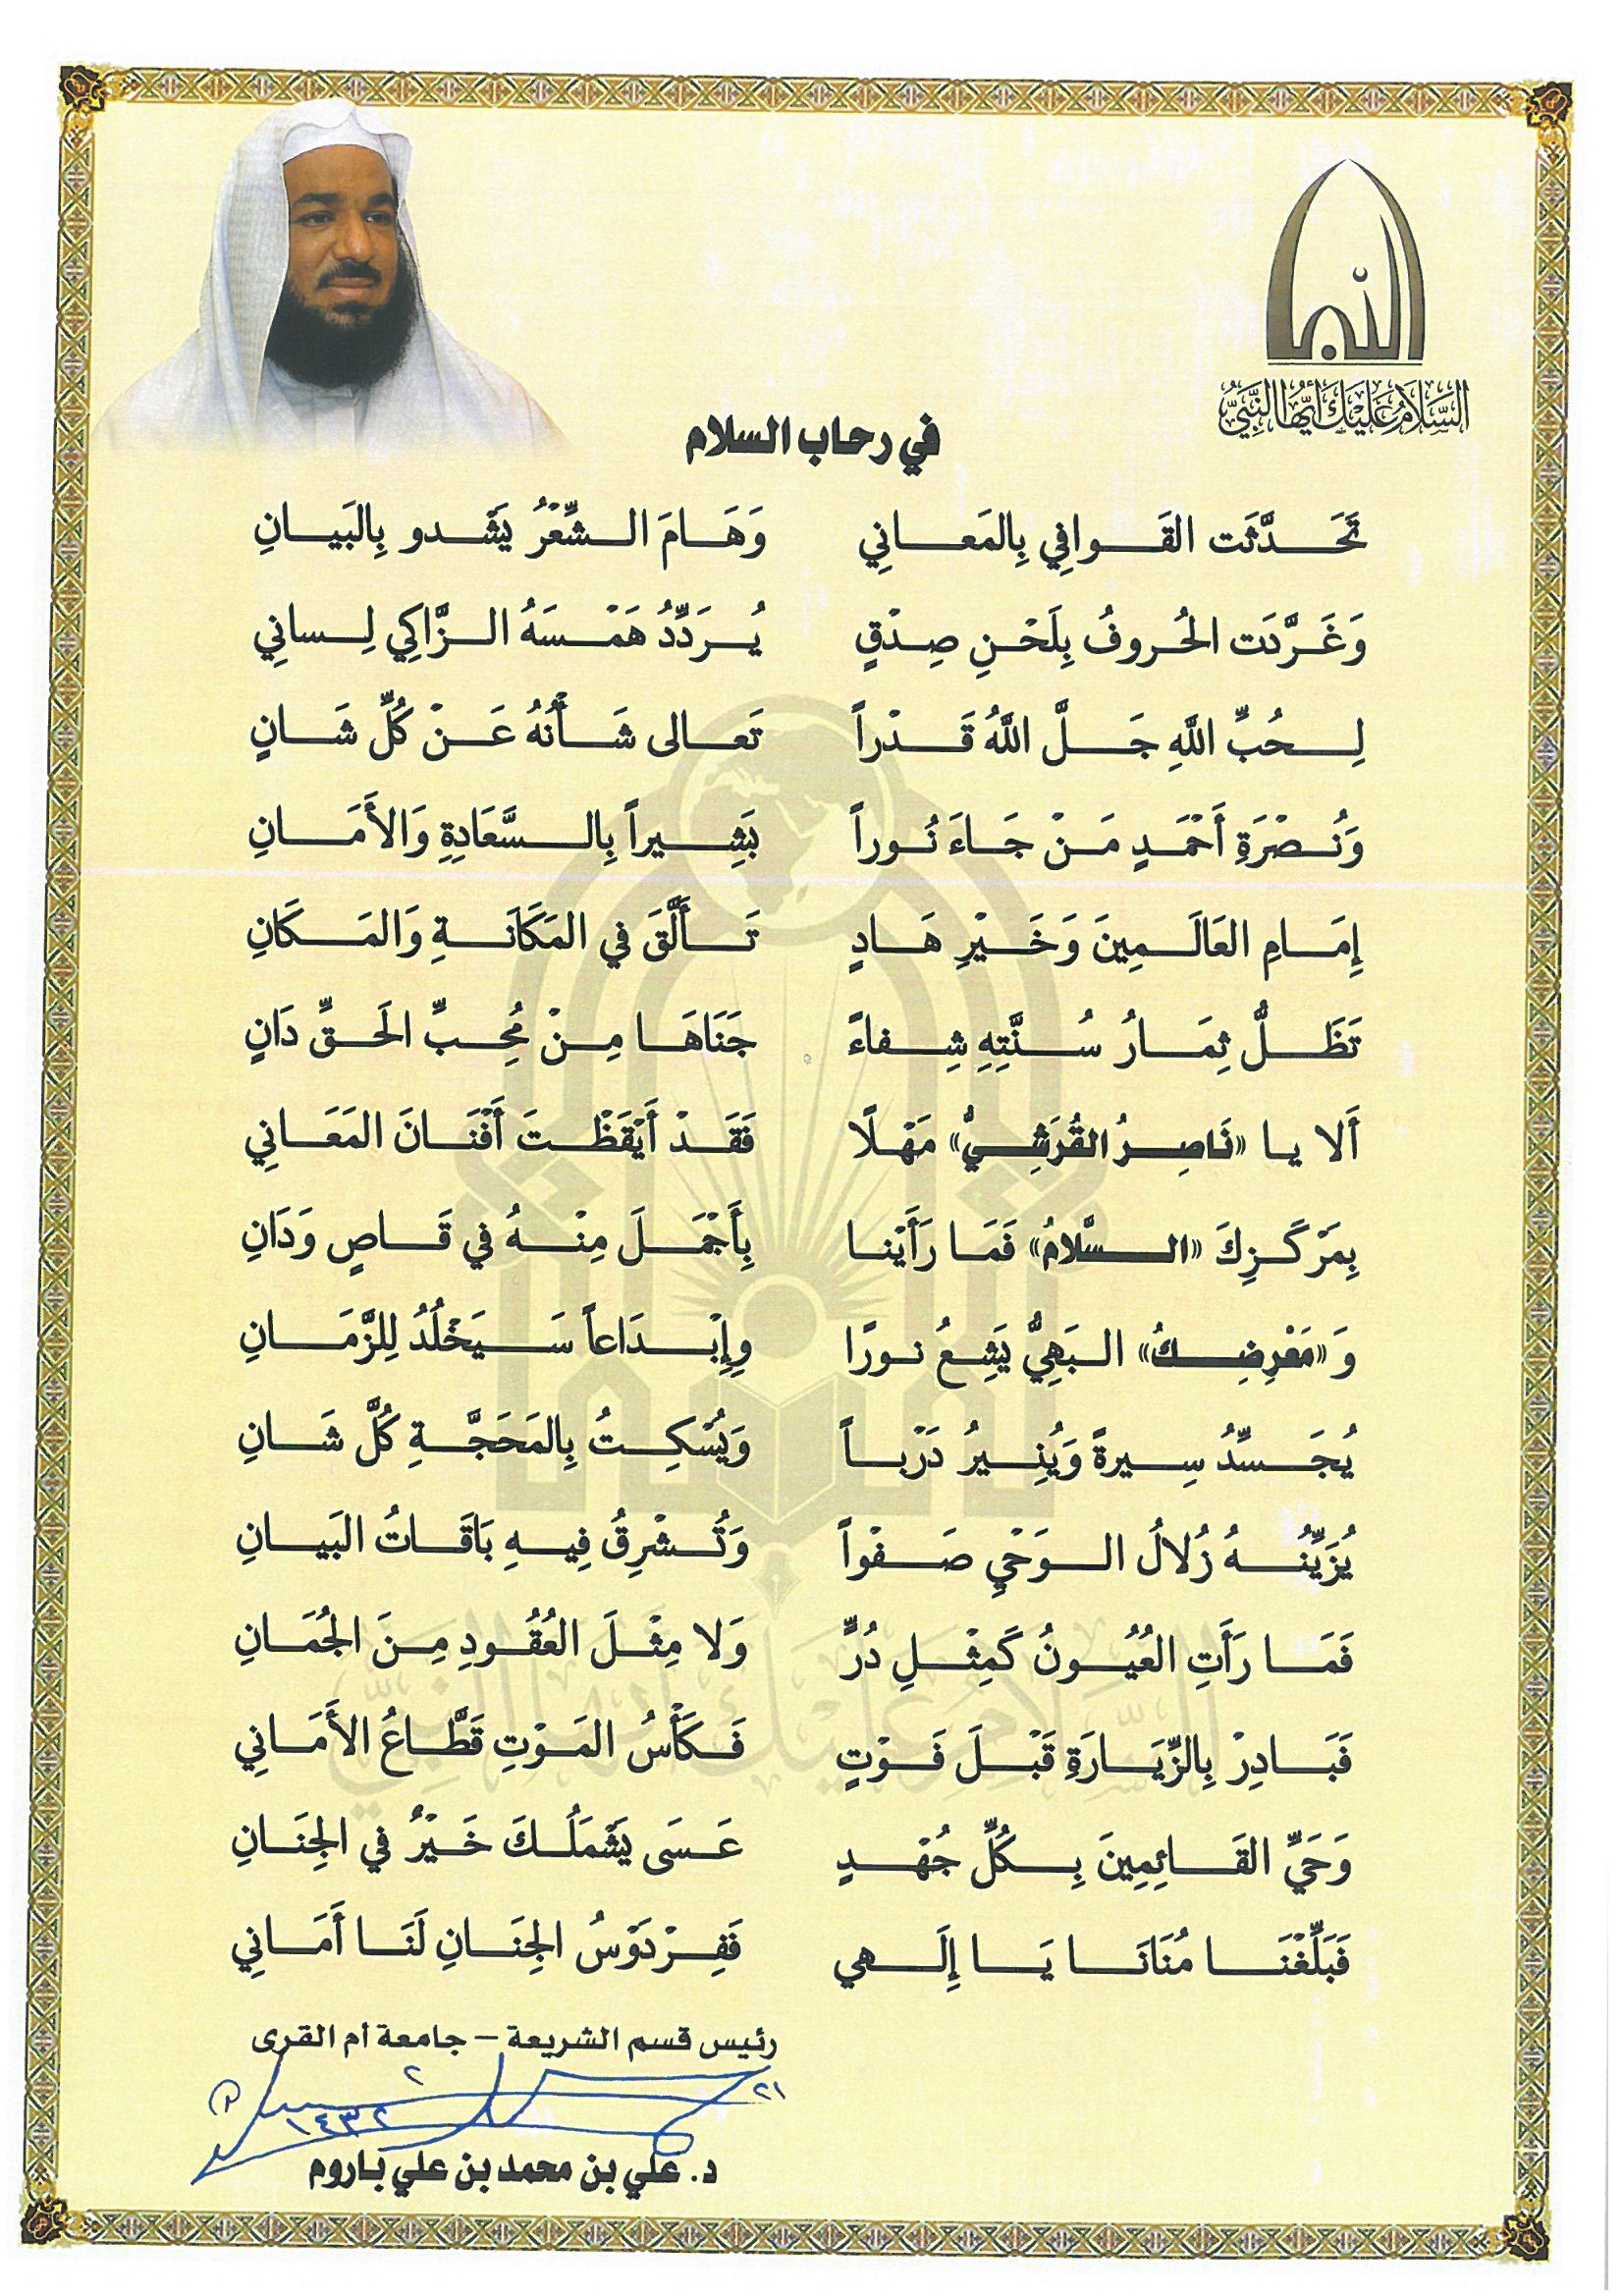 السَّلَامُ عَلَيْكَ أَيُّهَا النَّبِيُّ
في رحاب السلام
تَحَدَّثَت القَوافِي بِالمَعاني وَهَامَ الشِّعْرُ يَشْدو بِالبَيانِ
وَغَرَّدَت الحُروفُ بِلَحْنِ صِدْقٍ يُرَدِّدُ هَمْسَهُ الزَّاكِي لِساني
لِحُبِّ اللَّهِ جَلَّ اللَّهُ قَدْراً تَعالى شَأْنُهُ عَنْ كُلِّ شَانٍ
وَنُصْرَةِ أَحْمَدٍ مَنْ جَاءَ نُوراً بَشِيراً بِالسَّعَادِةِ وَالأَمَانِ
إِمَامِ العَالَمِينَ وَخَيْرِ هَادٍ تَأَلَّقَ في المَكَانَةِ وَالمَكَانِ
تَظَلُّ ثِمَارُ سُنَّتِهِ شِفاءً جَنَاهَا مِنْ مُحِبِّ الَحقِّ دَانٍ
أَلا يا «نَاصِرُ القُرَشِيُّ» مَهْلًا فَقَدْ أَيْقَظْتَ أَفْنَانَ المَعَاني
بِمَرْكَزِكَ «السَّلامُ» فَمَا رَأَيْنا بِأَجْمَلَ مِنْهُ في قَاصٍ وَدَانِ
وَ«مَعْرِضِكُ» البَهِيُّ يَشِعُ نورًا وِإِبْدَاعاً سَيَخْلُدُ لِلزَّمَانِ
يُجَسِّدُ سِيرةً وَيُنِيرُ دَرْباً وَيُسْكِتُ بِالمَحَجَّةِ كُلَّ شَانِ
يُزَيِّنُهُ زُلالُ الوَحْيِ صَفْواً وَتُشْرِقُ فِيهِ بَاقَاتُ البَيانِ
فَمَا رَأَتِ العُيُونُ كَمِثْلِ دُرٍّ وَلا مِثْلَ العُقُودِ مِنَ الجُمَانِ
فَبَادِرْ بِالزِّيَارَةِ قَبْلَ فَوْتٍ فَكَأْسُ المَوْتِ قَطَّاعُ الأَمَاني
وَحَيِّ القَائِمِينَ بِكُلِّ جُهْدٍ عَسَى يَشْمَلُكَ خَيْرٌ في الِجنَانِ
فَبَلِّغْنَا مُنَانَا يَا إِلَهي فَفِرْدَوْسُ الِجنَانِ لَنَا أَمَاني
رئيس قسم الشريعة – جامعة أم القرى
١٤٣٢
د. علي بن محمد بن علي باروم